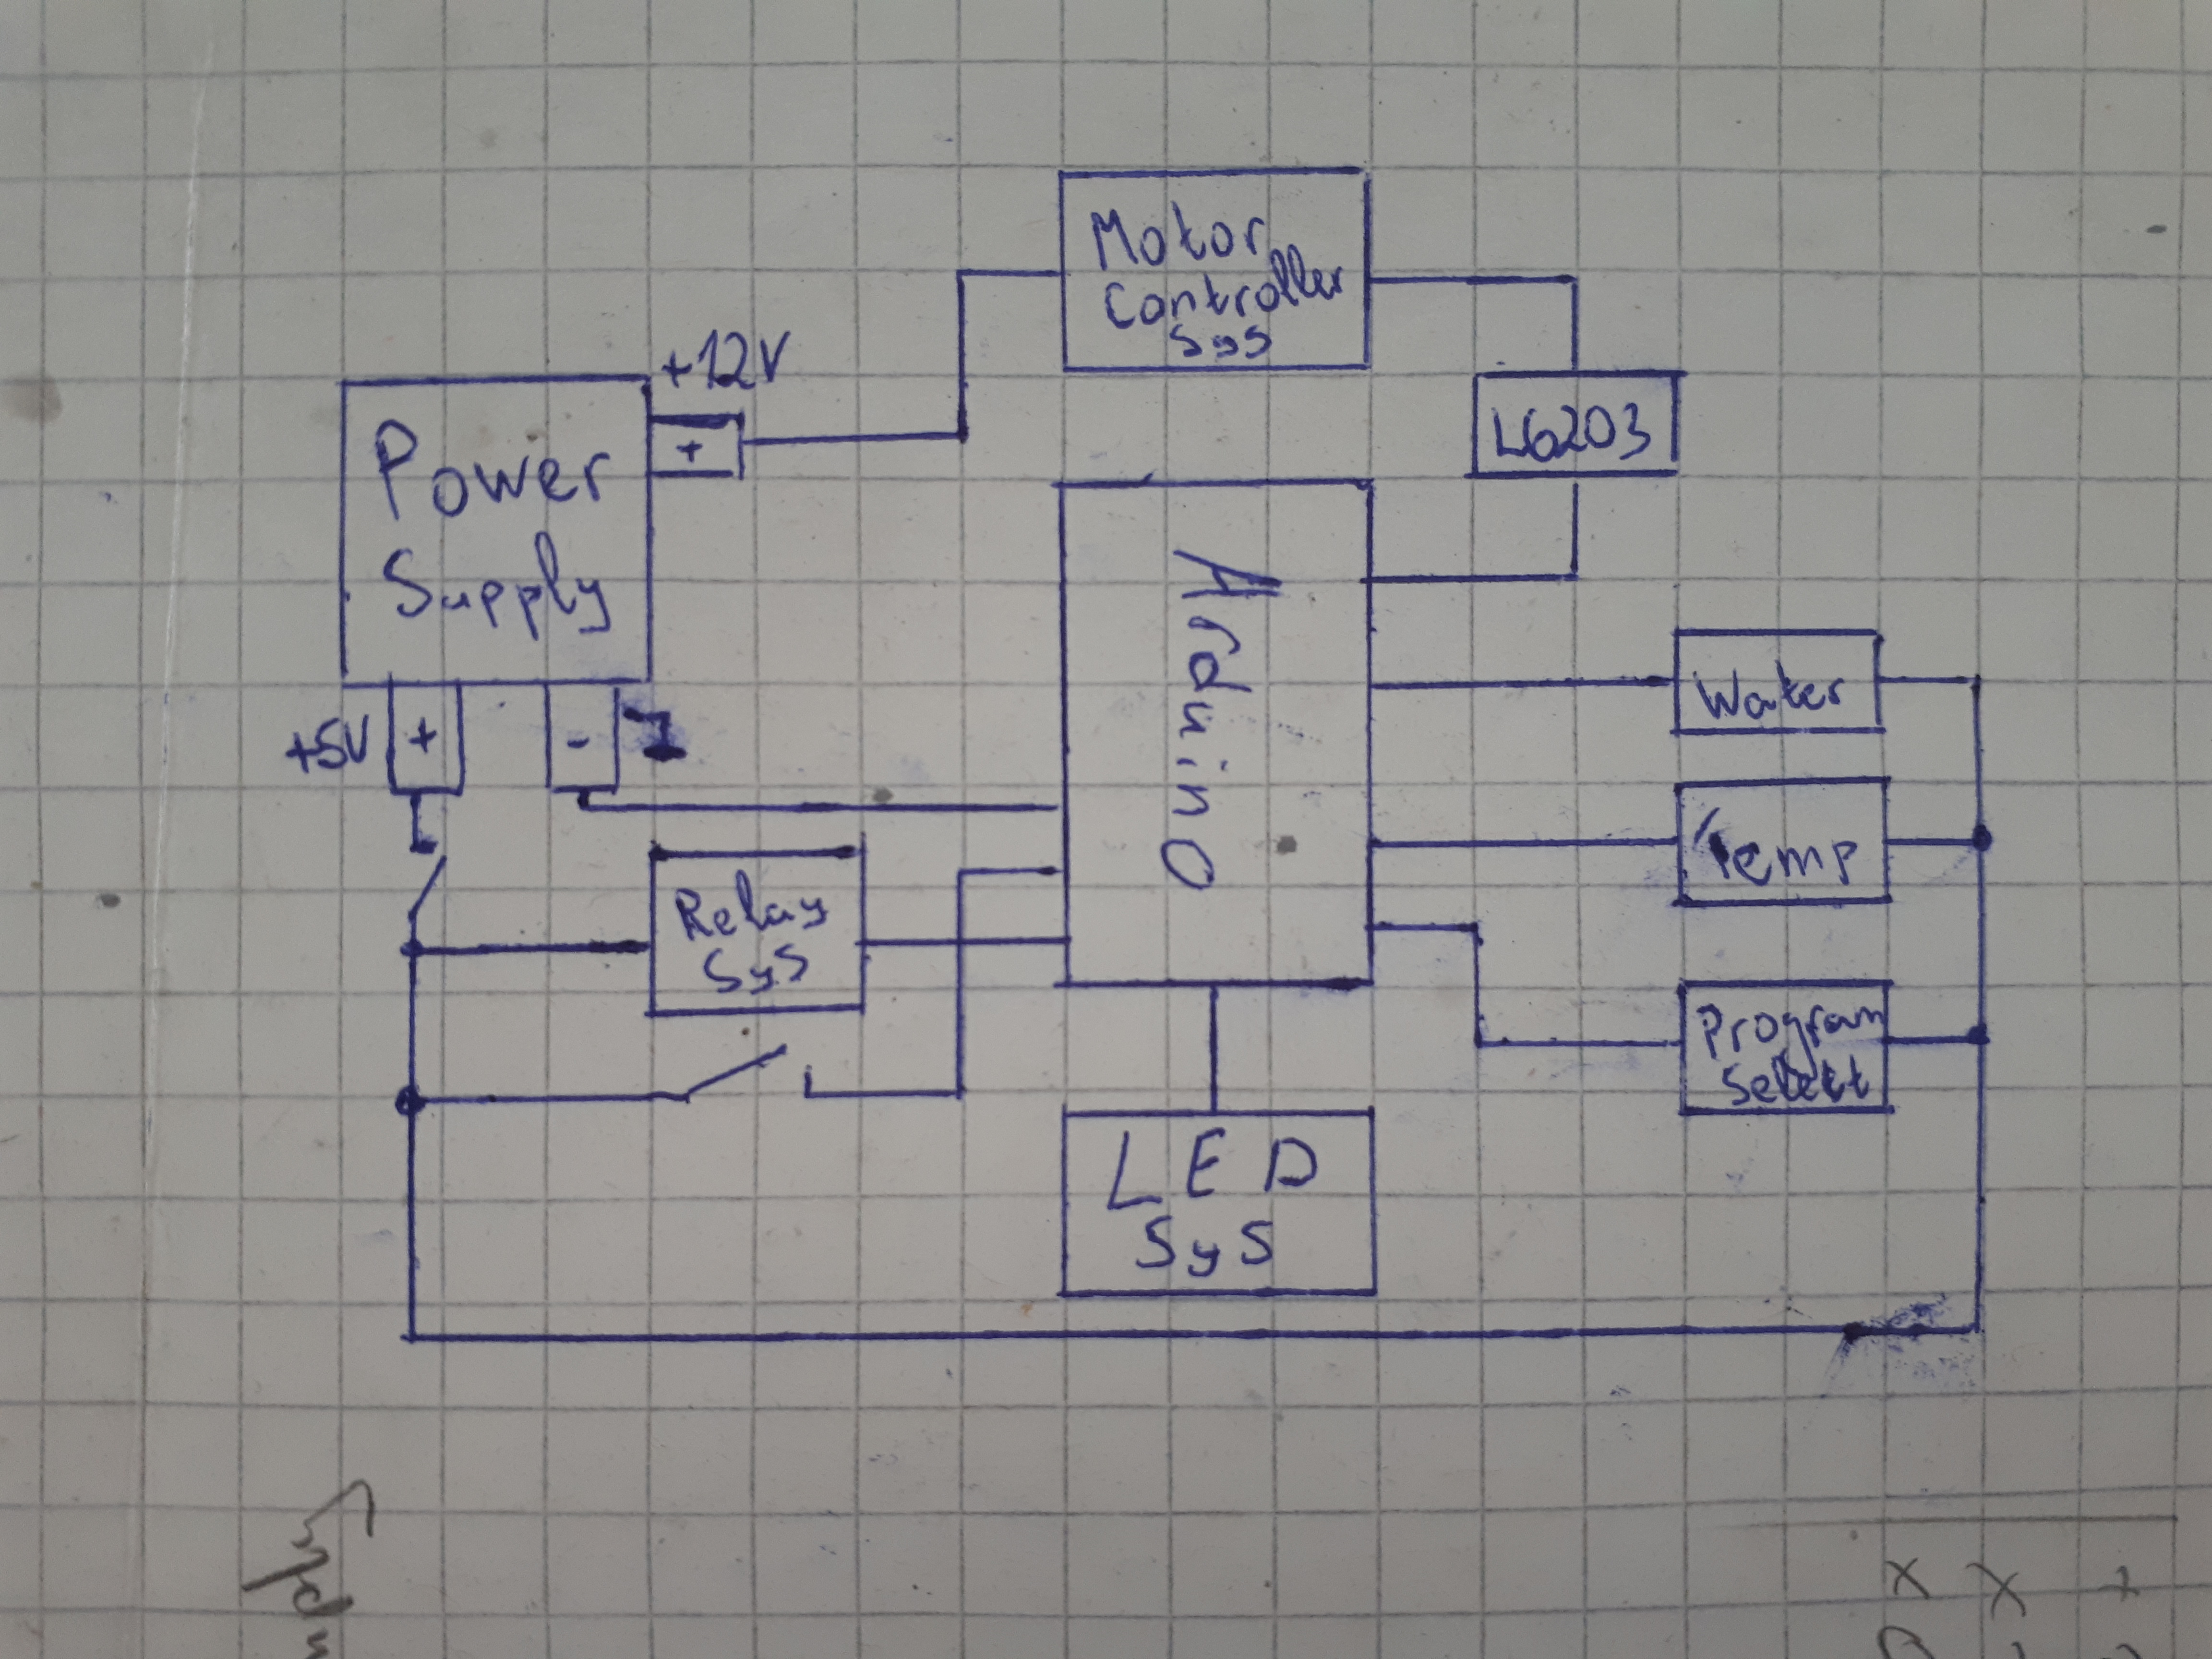 Motor
Controller
SyS
+12V
+
L6203
Power
Supply
Arduino
Water
+5V
+
-
Temp
Relay
SyS
Program
Selekt
LED
SyS
x x +